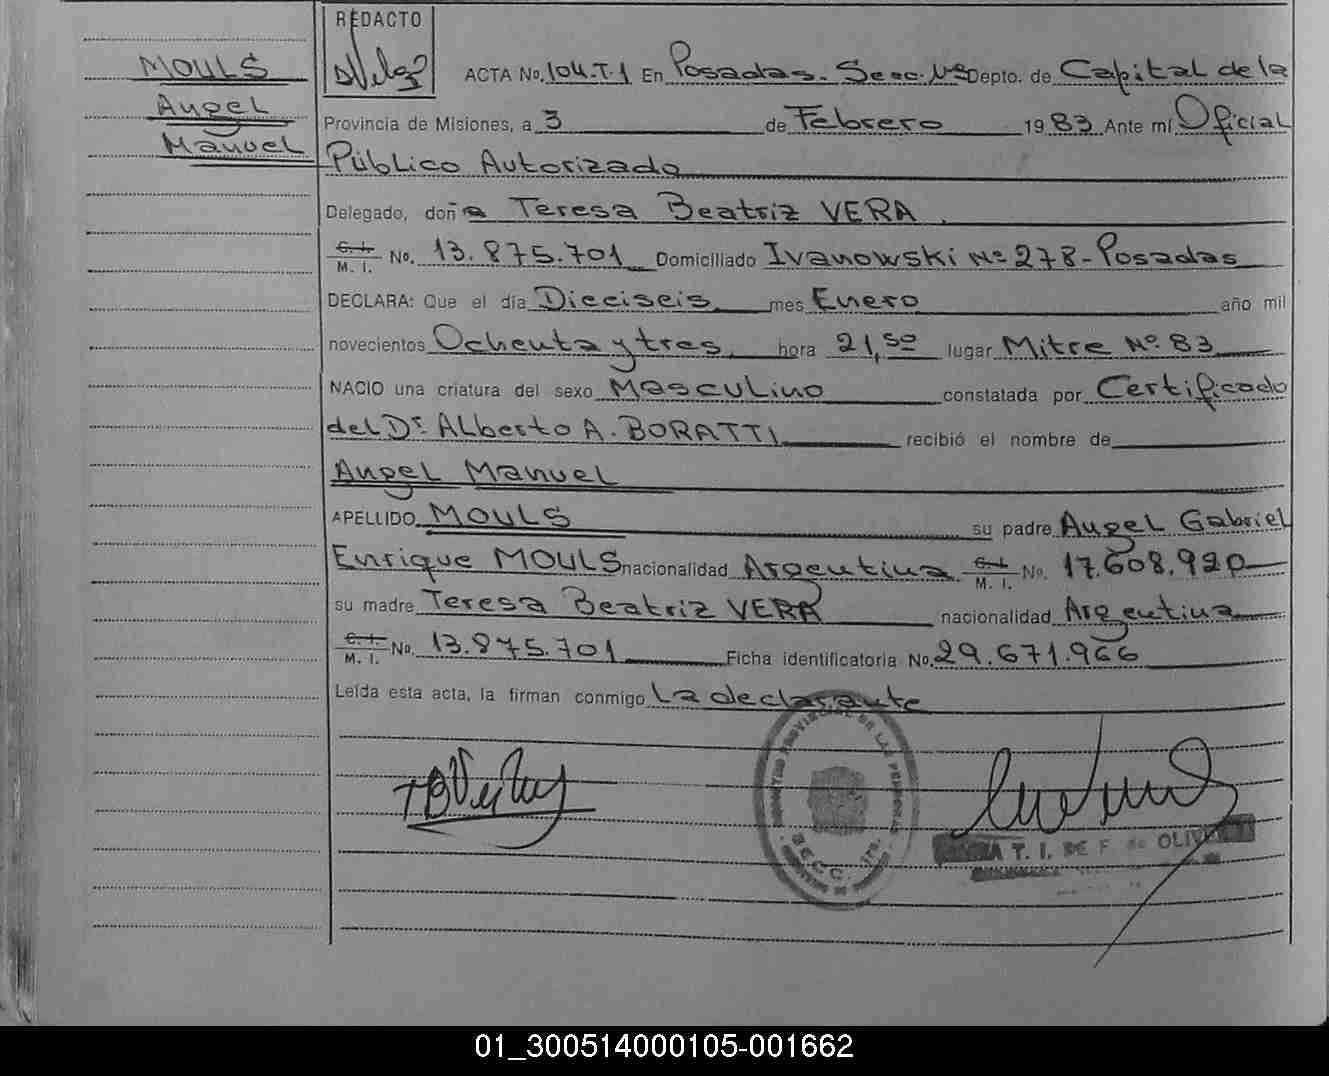 REDACTO
MOULS
Angel
Manuel
ACTA No. 104.T.1 En Posadas. Secc. 1ª Depto. de Capital de la
Provincia de Misiones, a 3 de Febrero 1983 Ante mí Oficial
Público Autorizado
Delegado, doña Teresa Beatriz VERA.
C. I. M. I. No. 13.875.701 Domiciliado Ivanowski Nº 278-Posadas
DECLARA: Que el día Dieciseis mes Enero año mil
novecientos Ochenta y tres, hora 21,50 lugar Mitre Nº 83
NACIO una criatura del sexo Masculino constatada por Certificado
del Dr. Alberto A. BORATTI recibió el nombre de
Angel Manuel
APELLIDO MOULS su padre Angel Gabriel
Enrique MOULS nacionalidad Argentina C. I. M. I. No. 17.608.920
su madre Teresa Beatriz VERA nacionalidad Argentina
C. I. M. I. No. 13.875.701 Ficha identificatoria No. 29.671.966
Leída esta acta, la firman conmigo La declarante
REGISTRO PROVINCIAL DE LAS PERSONAS
SECC. 1ra.
T. I. DE F. de OLIVERA
01_300514000105-001662